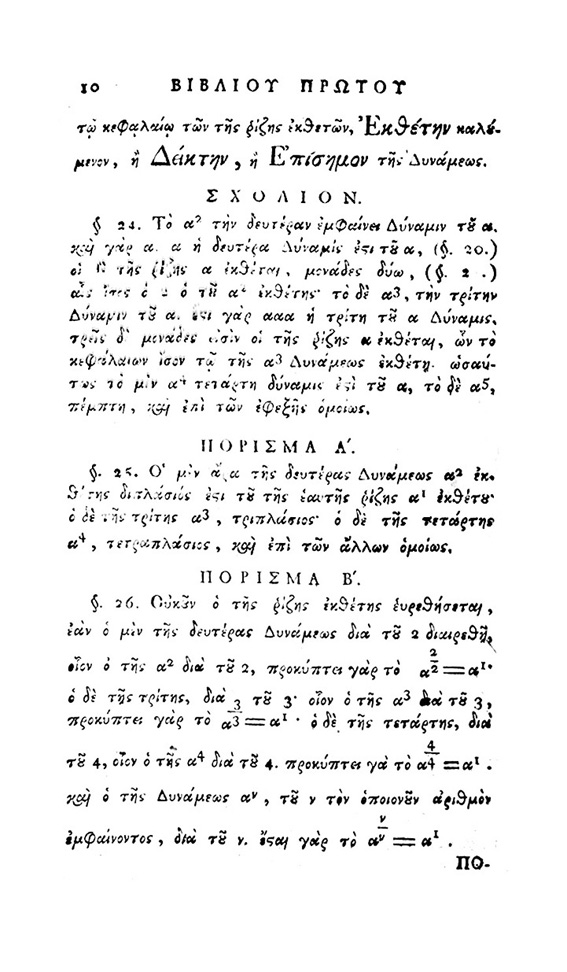 10 ΒΙΒΛΙΟΥ ΠΡΩΤΟΥ
τῷ κεφαλαίῳ τῶν τῆς ῥίζης ἐκθετῶν, Ἐκθέτην καλού-
μενον, ἢ Δείκτην, ἢ Ἐπίσημον τῆς Δυνάμεως.
ΣΧΟΛΙΟΝ.
§ 24. Τὸ α² τὴν δευτέραν ἐμφαίνει Δύναμιν τοῦ α.
καὶ γὰρ α. α ἡ δευτέρα Δύναμίς ἐστι τοῦ α, (§. 20.)
οἱ τῆς ῥίζης α ἐκθέται, μονάδες δύω, (§. 2 .)
ὁ 2 ὁ τοῦ α² ἐκθέτης· τὸ δὲ α3, τὴν τρίτην
Δύναμιν τοῦ α. ἐστι γὰρ ααα ἡ τρίτη τοῦ α Δύναμις,
τρεῖς δὲ μονάδες εἰσὶν οἱ τῆς ῥίζης α ἐκθέται, ὧν τὸ
κεφάλαιων ἴσον τῷ τῆς α3 Δυνάμεως ἐκθέτῃ. ὡσαύ-
τως τὸ μὲν α4 τετάρτη δύναμις ἐστὶ τοῦ α, τὸ δὲ α5,
πέμπτη, καὶ ἐπὶ τῶν ἐφεξῆς ὁμοίως.
ΠΟΡΙΣΜΑ Α΄.
§. 25. Ὁ μὲν ἄρα τῆς δευτέρας Δυνάμεως α² ἐκ-
θέτης διπλάσιός ἐστι τοῦ τῆς ἑαυτῆς ῥίζης α¹ ἐκθέτου·
ὁ δὲ τῆς τρίτης α3, τριπλάσιος· ὁ δὲ τῆς τετάρτης
α4, τετραπλάσιος, καὶ ἐπὶ τῶν ἄλλων ὁμοίως.
ΠΟΡΙΣΜΑ Β΄.
§. 26. Οὐκοῦν ὁ τῆς ῥίζης ἐκθέτης εὑρεθήσεται,
ἐὰν ὁ μὲν τῆς δευτέρας Δυνάμεως διὰ τοῦ 2 διαιρεθῇ,
οἷον ὁ τῆς α² διὰ τοῦ 2, προκύπτει γὰρ τὸ α^{2/2}=α¹·
ὁ δὲ τῆς τρίτης, διὰ τοῦ 3· οἷον ὁ τῆς α3 διὰ τοῦ 3,
προκύπτει γὰρ τὸ α^{3/3}=α¹· ὁ δὲ τῆς τετάρτης, διὰ
τοῦ 4, οἷον ὁ τῆς α4 διὰ τοῦ 4. προκύπτει γὰ τὸ α^{4/4}=α¹.
καὶ ὁ τῆς Δυνάμεως αν, τοῦ ν τὸν ὁποιονοῦν ἀριθμὸν
ἐμφαίνοντος, διὰ τοῦ ν. ἔσται γὰρ τὸ α^{ν/ν}=α¹.
ΠΟ-